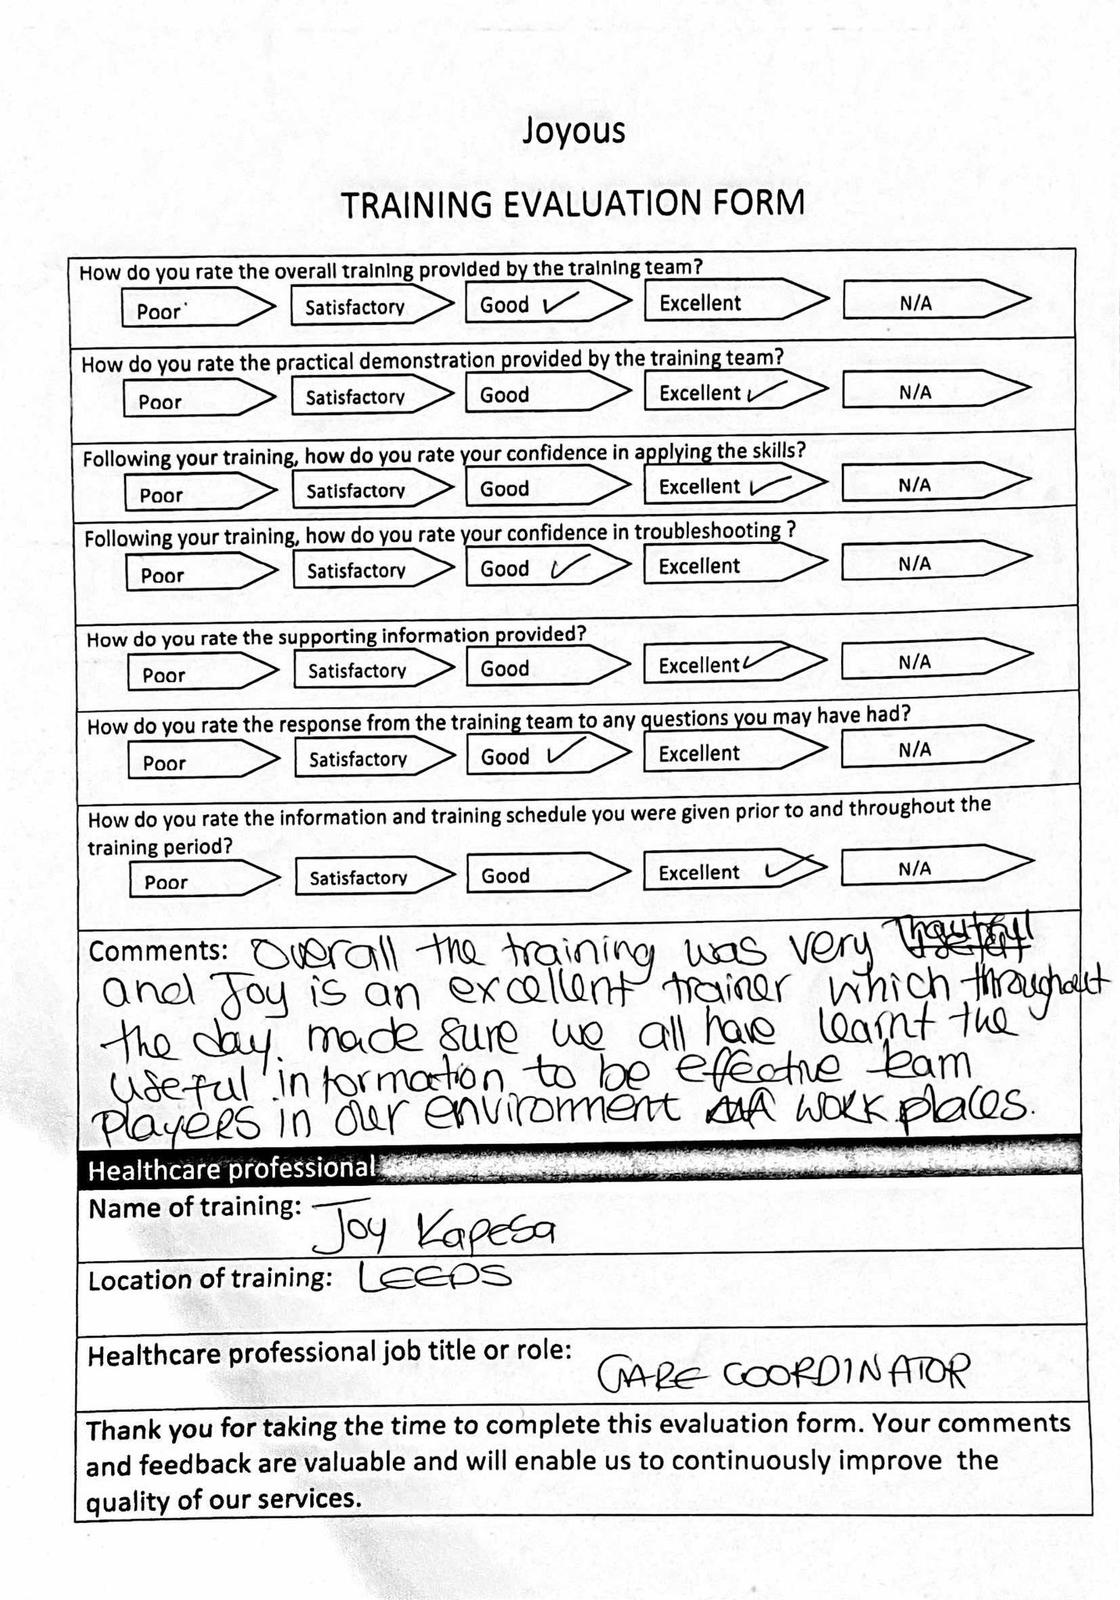 Joyous
TRAINING EVALUATION FORM
How do you rate the overall training provided by the training team?
Poor Satisfactory Good ✓ Excellent N/A
How do you rate the practical demonstration provided by the training team?
Poor Satisfactory Good Excellent ✓ N/A
Following your training, how do you rate your confidence in applying the skills?
Poor Satisfactory Good Excellent ✓ N/A
Following your training, how do you rate your confidence in troubleshooting ?
Poor Satisfactory Good ✓ Excellent N/A
How do you rate the supporting information provided?
Poor Satisfactory Good Excellent ✓ N/A
How do you rate the response from the training team to any questions you may have had?
Poor Satisfactory Good ✓ Excellent N/A
How do you rate the information and training schedule you were given prior to and throughout the
training period?
Poor Satisfactory Good Excellent ✓ N/A
Comments: Overall the training was very
and Joy is an excellent trainer which throughout
the day. made sure we all have learnt the
useful information to be effective team
players in our environment work places.
Healthcare professional
Name of training: Joy Kapesa
Location of training: LEEDS
Healthcare professional job title or role: CARE COORDINATOR
Thank you for taking the time to complete this evaluation form. Your comments
and feedback are valuable and will enable us to continuously improve the
quality of our services.